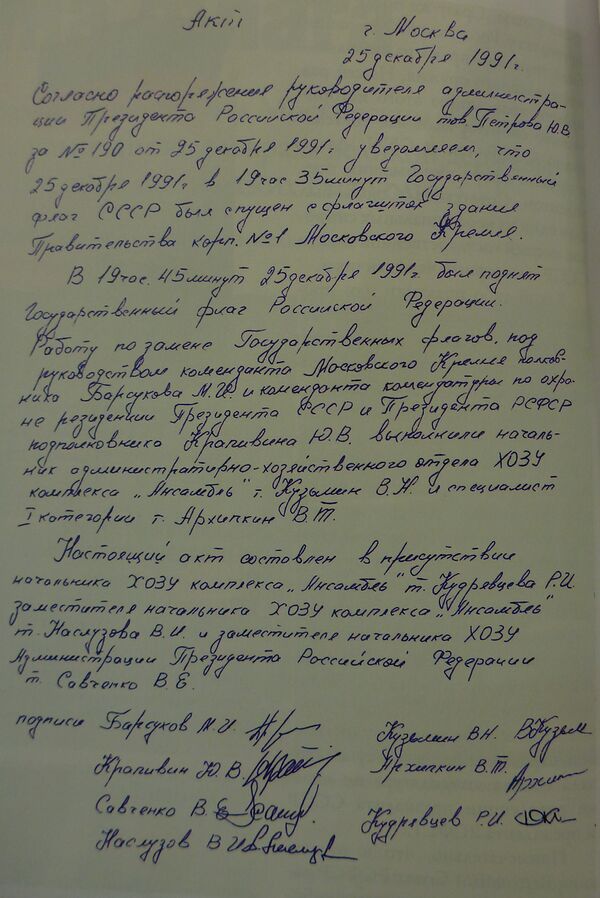 Акт
г. Москва
25 декабря 1991г.
Согласно распоряжения руководителя администра-
ции Президента Российской Федерации тов Петрова Ю.В
за № 190 от 25 декабря 1991г уведомляем, что
25 декабря 1991г в 19 час 35 минут Государственный
флаг СССР был спущен с флагшток здания
Правительства корп. №1 Московского Кремля.
В 19 час. 45 минут 25 декабря 1991г. был поднят
Государственный флаг Российской Федерации.
Работу по замене Государственных флагов, под
руководством коменданта Московского Кремля полков-
ника Барсукова М.И. и коменданта комендатуры по охра-
не резиденции Президента СССР и Президента РСФСР
подполковника Крапивина Ю.В. выполнили началь-
ник административно-хозяйственного отдела ХОЗУ
комплекса „Ансамбль" т. Кузьмин В.Н. и специалист
I категории т. Архипкин В.Т.
Настоящий акт составлен в присутствии
начальника ХОЗУ комплекса „Ансамбль" т. Кудрявцева Р.И.
заместителя начальника ХОЗУ комплекса „Ансамбль"
т. Наслузова В.И. и заместителя начальника ХОЗУ
Администрации Президента Российской Федерации
т. Савченко В.Е.
подписи Барсуков М.И. Кузьмин В.Н.
Крапивин Ю.В. Архипкин В.Т.
Савченко В.Е.
Кудрявцев Р.И.
Наслузов В.И.